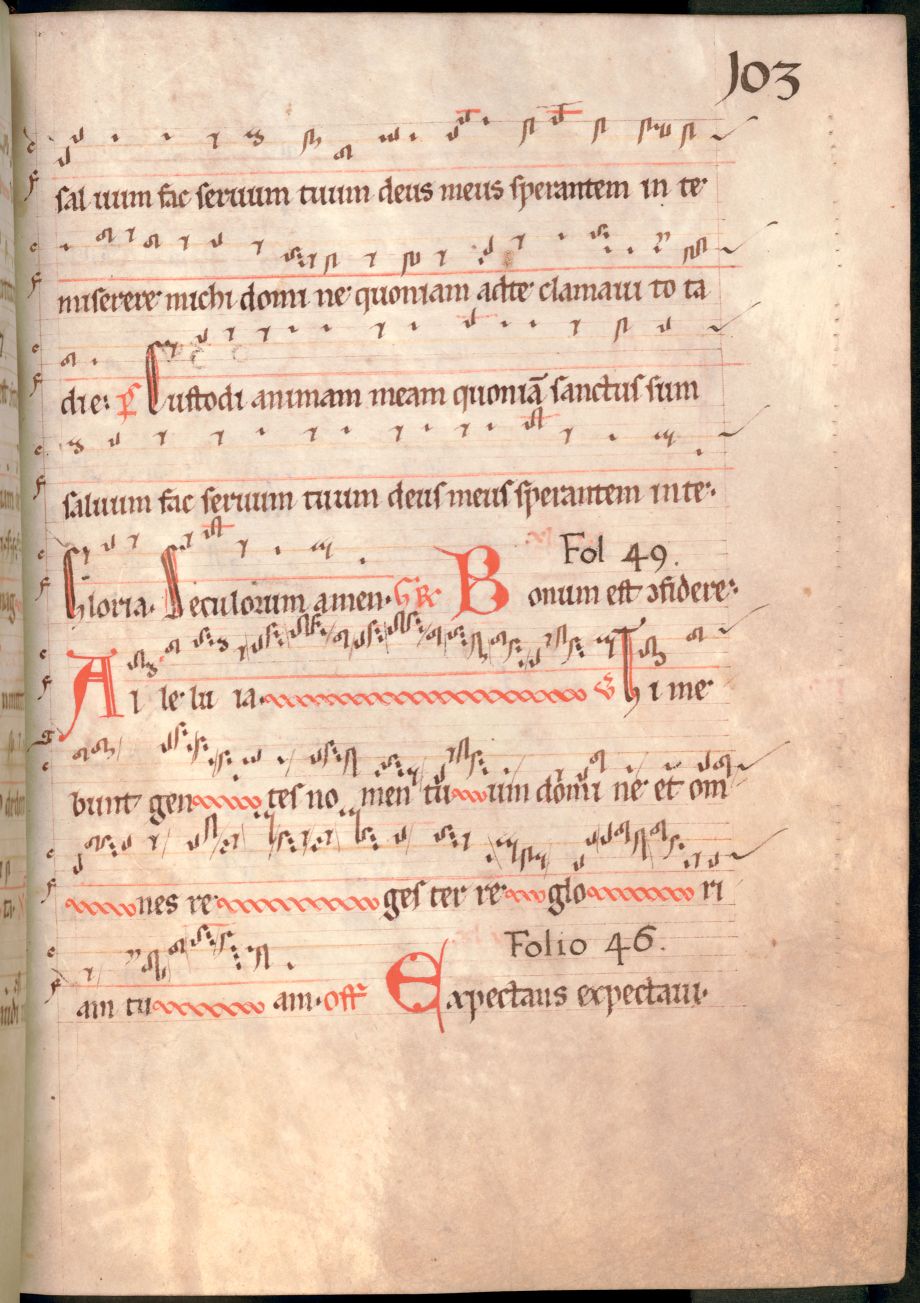 103
sal uum fac seruum tuum deus meus sperantem in te
miserere michi domi ne quoniam adte clamaui to ta
die: Custodi animam meam quoniā sanctus sum
saluum fac seruum tuum deus meus sperantem inte.
Fol 49.
Gloria. Seculorum amen. GR Bonum est ɔfidere:
Al le lu ia. V Ti me
bunt gen tes no men tu um domi ne et om
nes re ges ter re glo ri
Folio 46.
am tu am. off Expectans expectaui.